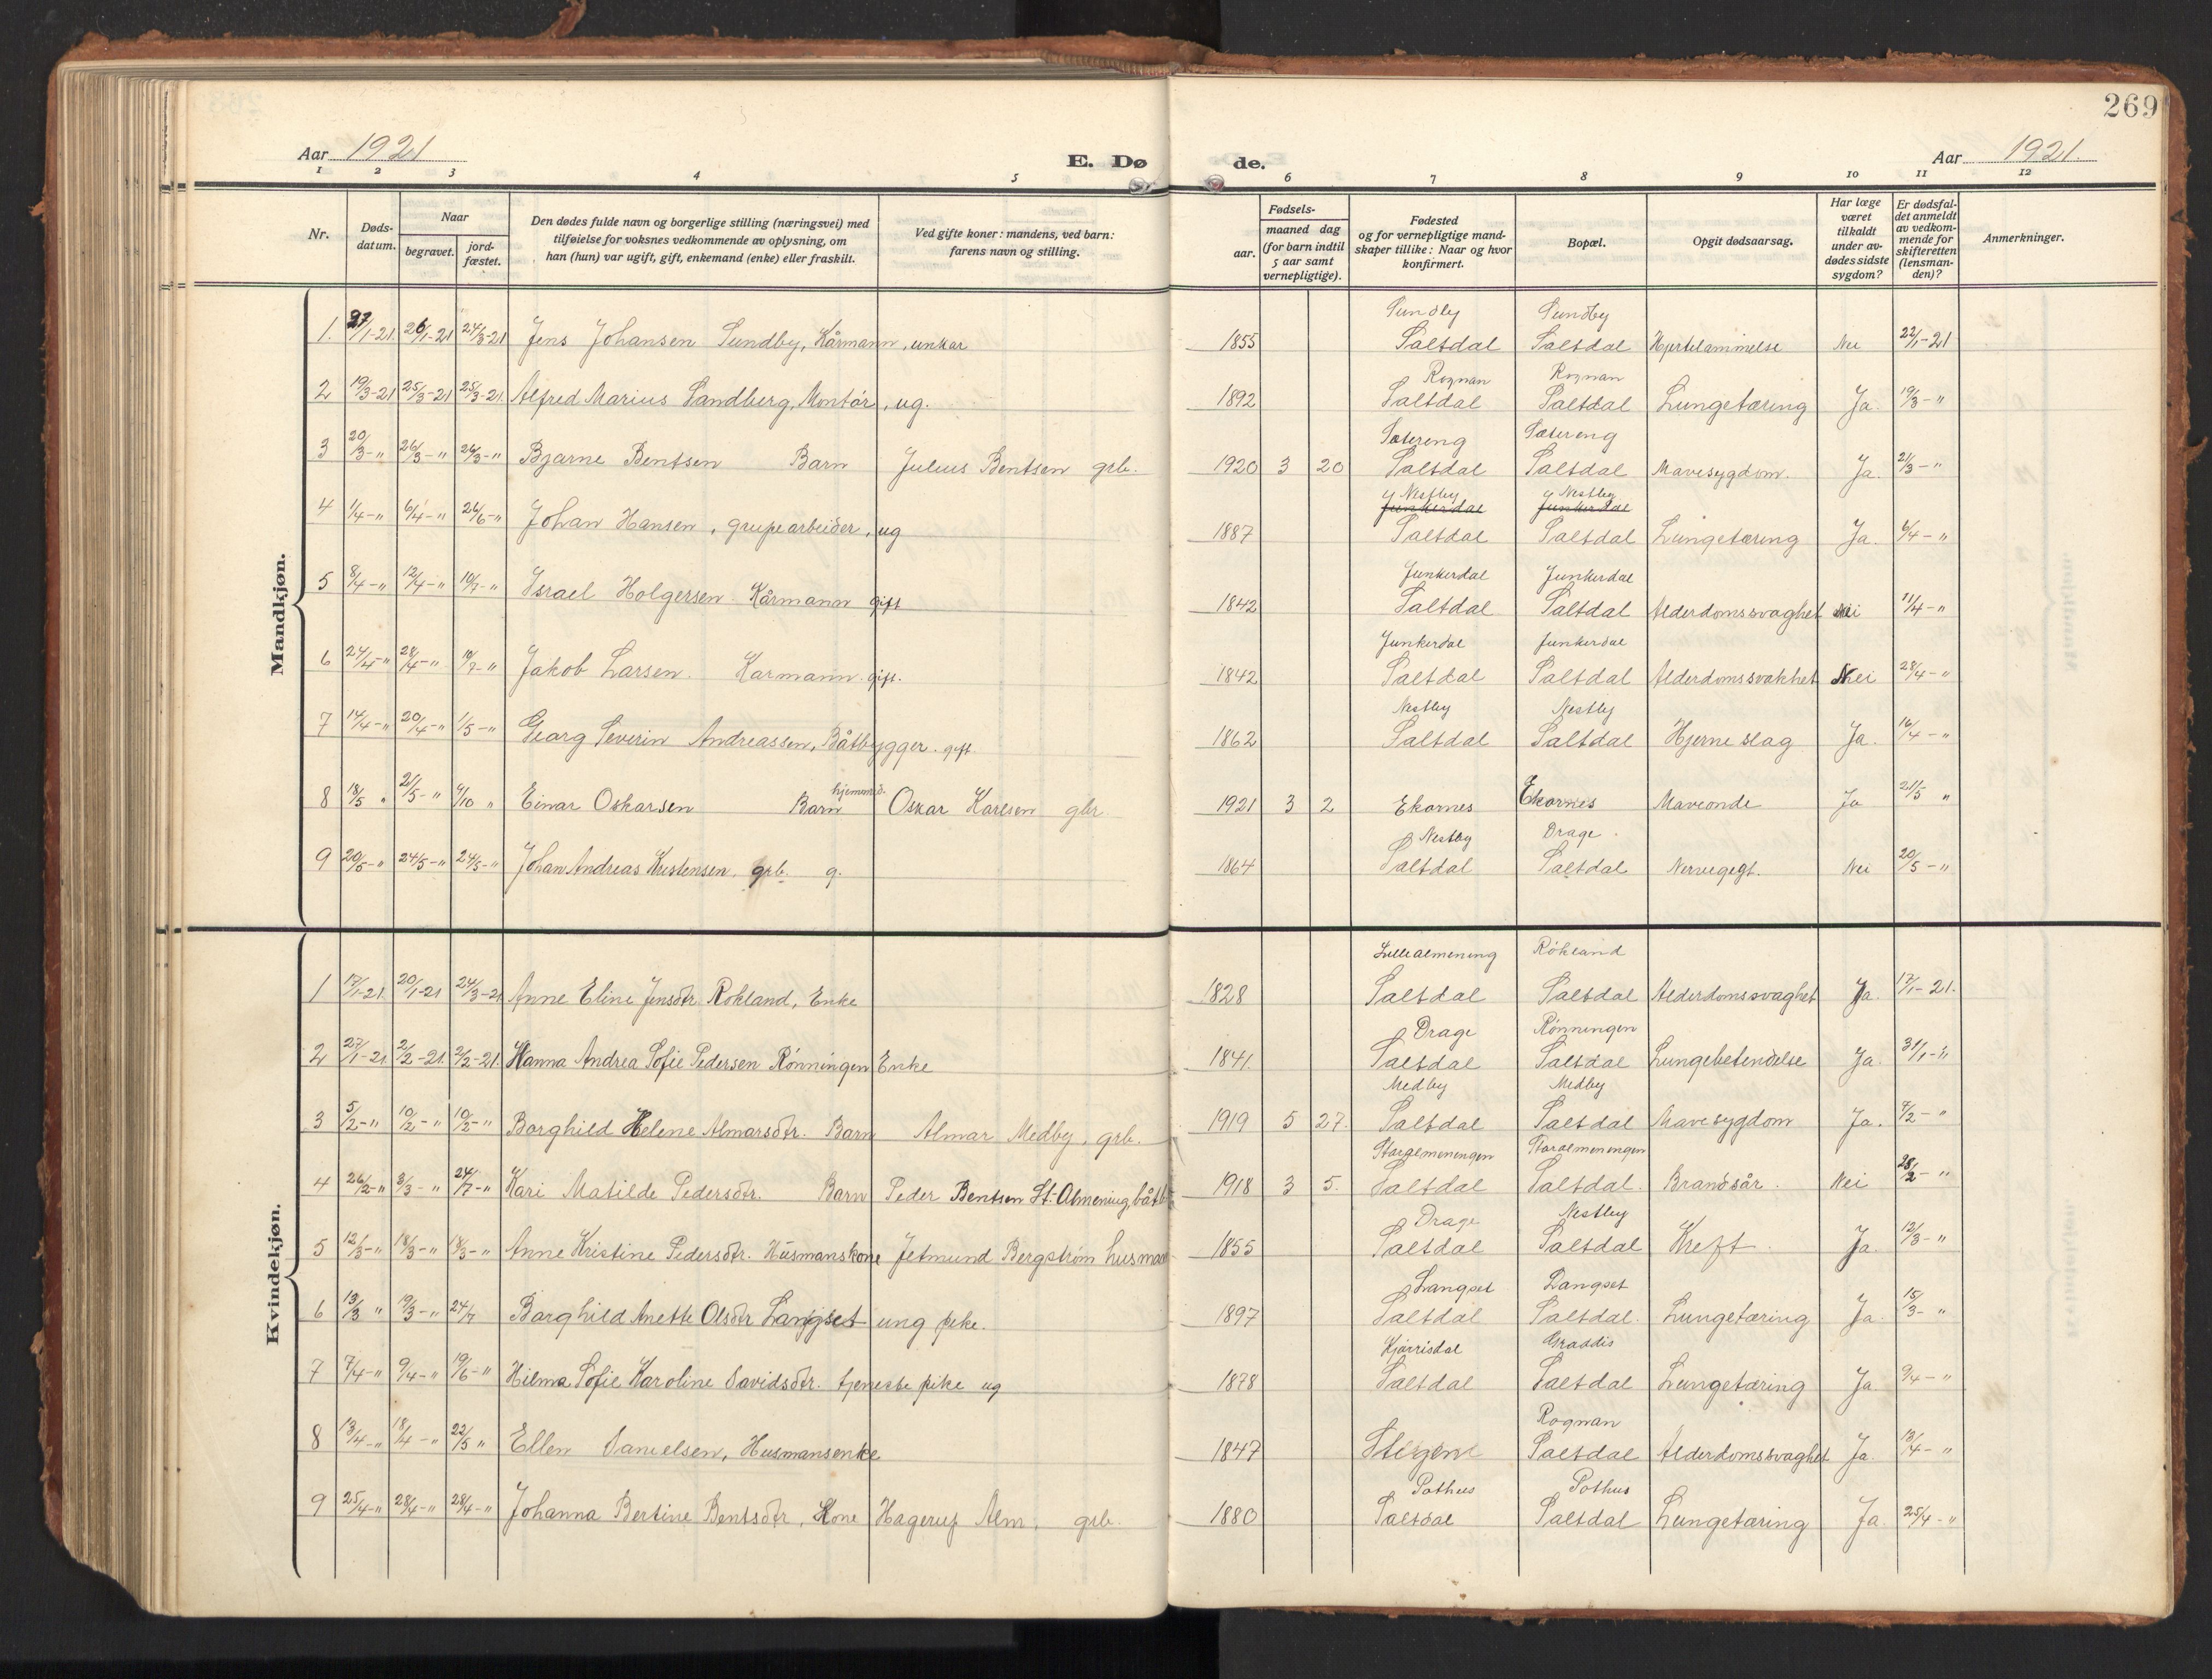 269
Aar 1921 E. Dø de. Aar 1921.
1 2 3 4 5 6 7 8 9 10 11 12
Nr.
Døds-datum.
Naar
begravet.
jord-fæstet.
Den dødes fulde navn og borgerlige stilling (næringsvei) med
tilføielse for voksnes vedkommende av oplysning, om
han (hun) var ugift, gift, enkemand (enke) eller fraskilt.
Ved gifte koner: mandens, ved barn:
farens navn og stilling.
Fødsels-
aar.
maaned dag
(for barn indtil
5 aar samt
vernepligtige).
Fødested
og for vernepligtige mand-
skaper tillike: Naar og hvor
konfirmert.
Bopæl.
Opgit dødsaarsag.
Har læge
været
tilkaldt
under av-
dødes sidste
sygdom?
Er dødsfal-
det anmeldt
av vedkom-
mende for
skifteretten
(lensman-
den)?
Anmerkninger.
Mandkjøn.
Sundby Sundby
1. 26/1-21 24/3-21 Jens Johansen Sundby, Kårmann, unkar 1855 Saltdal Saltdal Hjertelammelse Nei 22/1-21
Rognan Rognan
2 19/3-21 25/3-21 25/3-21. Alfred Marius Sandberg, Montør, ug. 1892 Saltdal Saltdal Lungetæring Ja. 19/3-"
Sætereng Sætereng
3 20/3-" 26/3-" 26/3-" Bjarne Bentsen Barn Julius Bentsen grb. 1920 3 20 Saltdal Saltdal Mavesygdom. Ja. 21/3-"
Nestby Nestby
Junkerdal Junkerdal
4 1/4-" 6/4-" 26/6-" Johan Hansen, grupearbeider, ug 1887 Saltdal Saltdal Lungetæring Ja. 6/4-"
Junkerdal Junkerdal
5 8/4-" 12/4-" 10/7-" Israel Holgersen Kårmann gift 1842 Saltdal Saltdal Alderdomssvaghet Nei 11/4-"
Junkerdal Junkerdal
6 24/4-" 28/4-" 10/7-" Jakob Larsen. Karmann. gift. 1842 Saltdal Saltdal Alderdomssvakhet Nei 28/4-"
Nestby Nestby
7 14/4-" 20/4-" 1/5-" Georg Severin Andreassen, Båtbygger. gift 1862 Saltdal Saltdal Hjerneslag Ja. 16/4-"
8 18/5 " 21/5-" 9/10 " Einar Oskarsen Barn hjemmed. Oskar Karlsen gbr. 1921 3 2 Ekornes Ekornes Maveonde Ja 21/5 "
Nestby Drage.
9 20/5-" 24/5-" 24/5-" Johan Andreas Kristensen, grb. g. 1864 Saltdal Saltdal Nervegigt. Nei 20/5-"
Kvindekjøn.
Lillealmening Røkland
1 17/1-21. 20/1-21 24/3-21 Anne Eline Jensdtr. Rokland, Enke 1828 Saltdal Saltdal Alderdomssvaghet Ja. 17/1-21.
Drage Rønningen
2 27/1-21. 2/2-21. 2/2-21. Hanna Andrea Sofie Pedersen Rønningen Enke 1841. Saltdal Saltdal Lungebetendelse Ja. 31/1-"
Medby Medby
3 5/2-" 10/2-" 10/2-" Borghild Helene Almarsdtr. Barn Almar Medby, grb. 1919 5 27. Saltdal Saltdal Mavesygdom Ja. 7/2-"
Storalmeningen Storalmeningen
4 26/2-" 3/3-" 24/7-" Kari Matilde Pedersdtr. Barn Peder Bentsen St. Almening, båtb 1918 3 5. Saltdal Saltdal. Brandsår. Nei 28/2-"
Drage Nestby
5 12/3-" 18/3-" 18/3-" Anne Kristine Pedersdtr. Husmanskone Jetmund Bergstrøm husman 1855 Saltdal Saltdal Kreft Ja. 12/3-"
Langset Langset
6 13/3 " 19/3-" 24/7 Borghild Anette Olsdtr Langset ung pike. 1897 Saltdal Saltdal. Lungetæring Ja. 15/3-"
Graddis
7 7/4-" 9/4-" 19/6-" Hilma Sofie Karoline Davidsdtr. tjeneste pike ug 1878 Saltdal Saltdal Lungetæring Ja. 9/4-"
Rognan
8 13/4-" 18/4-" 22/5 " Ellen Danielsen, Husmansenke 1847 Steigen Saltdal Alderdomssvaghet Ja. 13/4-"
Pothus Pothus
9 25/4-" 28/4-" 28/4-" Johanna Bertine Bentsdtr, Kone Hagerup Alm, grb. 1880 Saltdal Saltdal Lungetæring Ja. 25/4-"